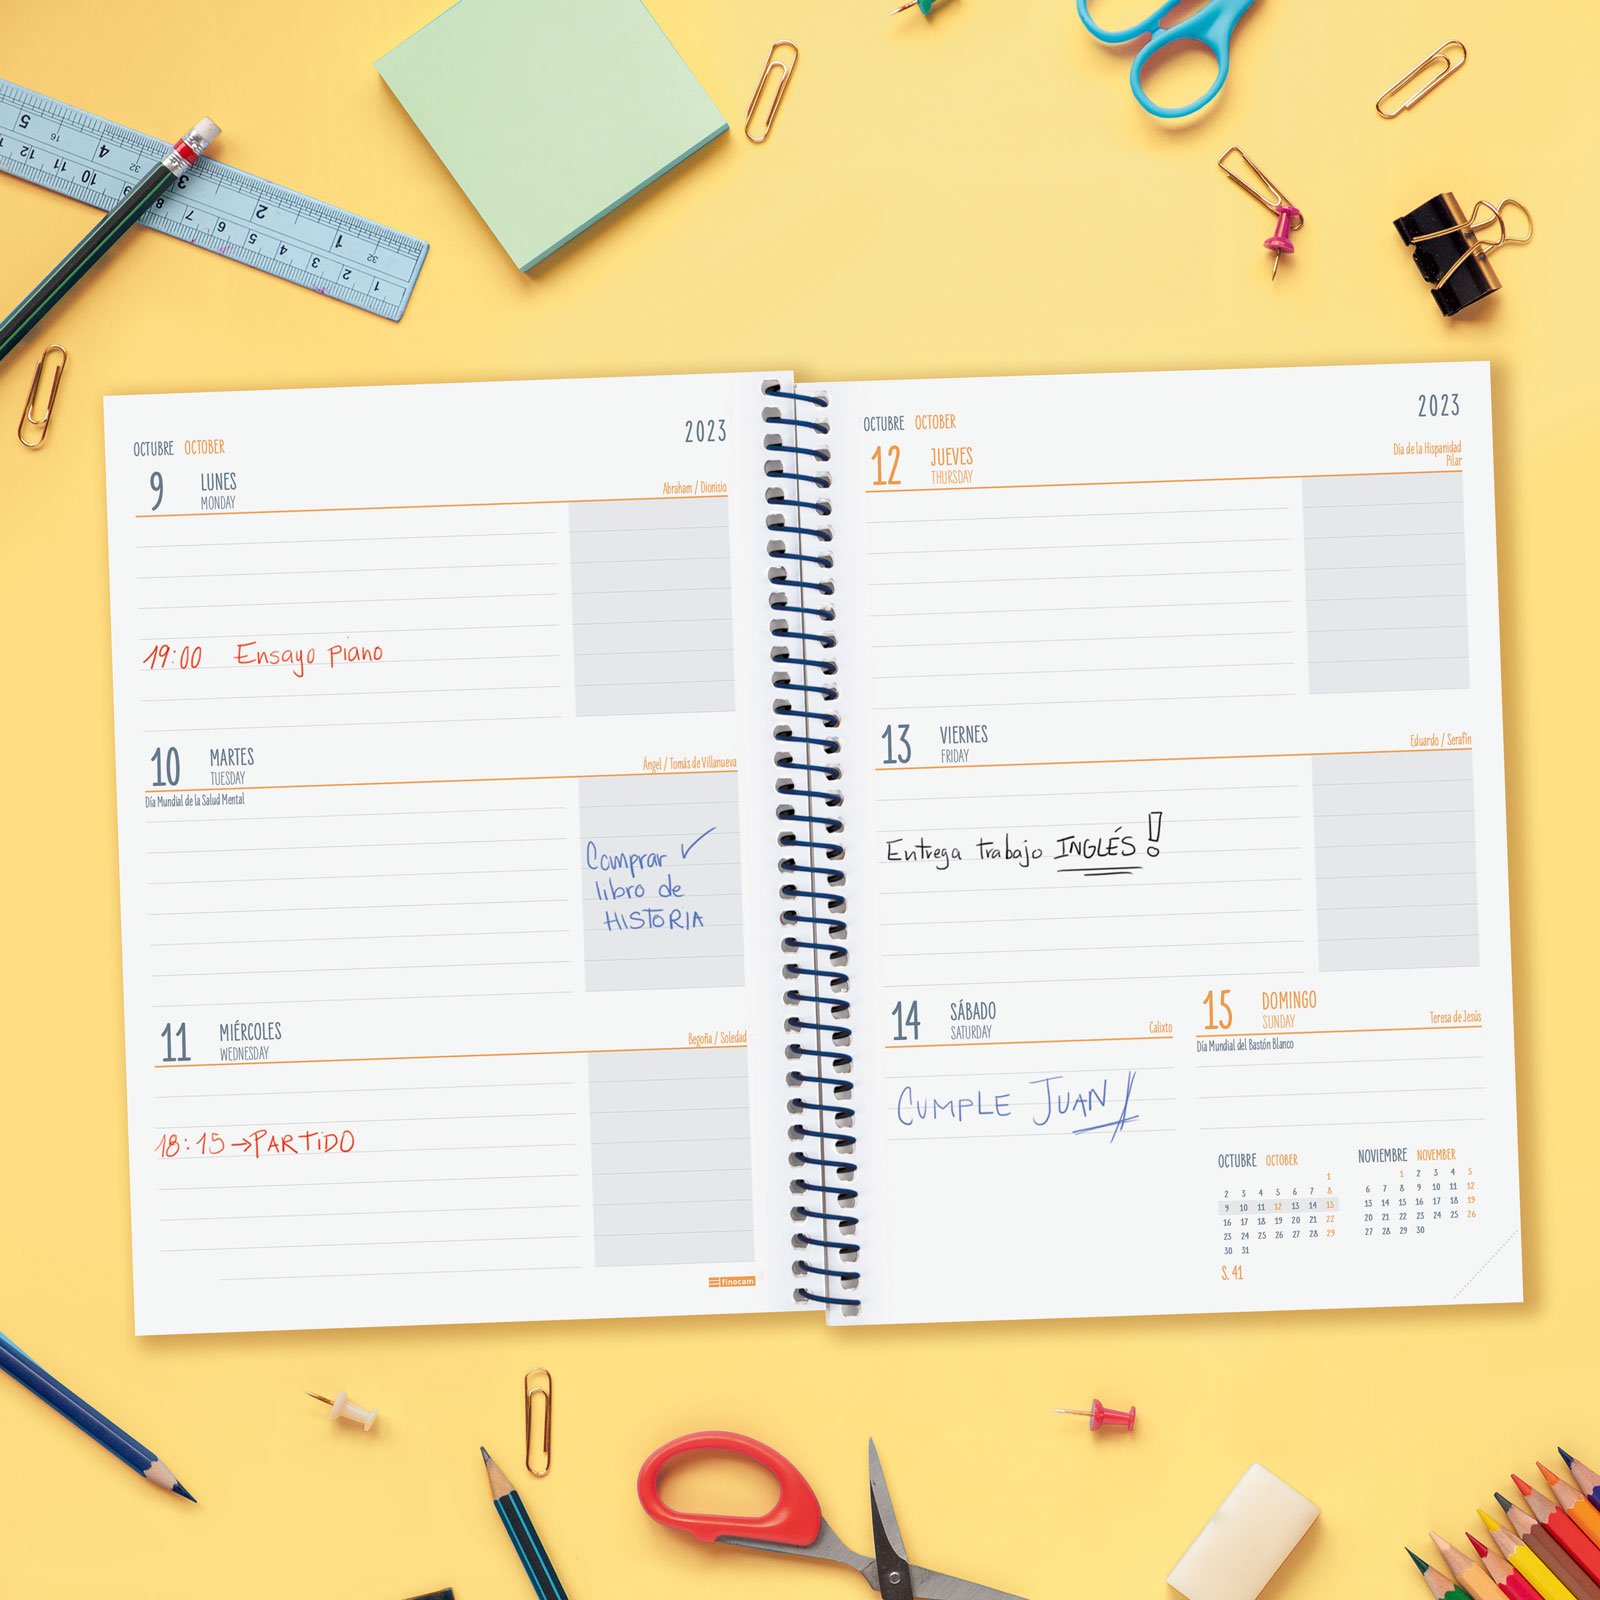 OCTUBRE OCTOBER
2023
9 LUNES
MONDAY
Abraham / Dionisio
19:00 Ensayo piano
10 MARTES
TUESDAY
Ángel / Tomás de Villanueva
Día Mundial de la Salud Mental
Comprar ✓
libro de
HISTORIA
11 MIÉRCOLES
WEDNESDAY
Begoña / Soledad
18:15 → PARTIDO
finocam
OCTUBRE OCTOBER
2023
12 JUEVES
THURSDAY
Día de la Hispanidad
Pilar
13 VIERNES
FRIDAY
Eduardo / Serafín
Entrega trabajo INGLÉS!
14 SÁBADO
SATURDAY
Calixto
CUMPLE JUAN!
15 DOMINGO
SUNDAY
Teresa de Jesús
Día Mundial del Bastón Blanco
OCTUBRE OCTOBER
1
2 3 4 5 6 7 8
9 10 11 12 13 14 15
16 17 18 19 20 21 22
23 24 25 26 27 28 29
30 31
S. 41
NOVIEMBRE NOVEMBER
1 2 3 4 5
6 7 8 9 10 11 12
13 14 15 16 17 18 19
20 21 22 23 24 25 26
27 28 29 30
5 4 3 2 1
16 32 32
12 11 10 9 8 7 6 5 4 3 2 1